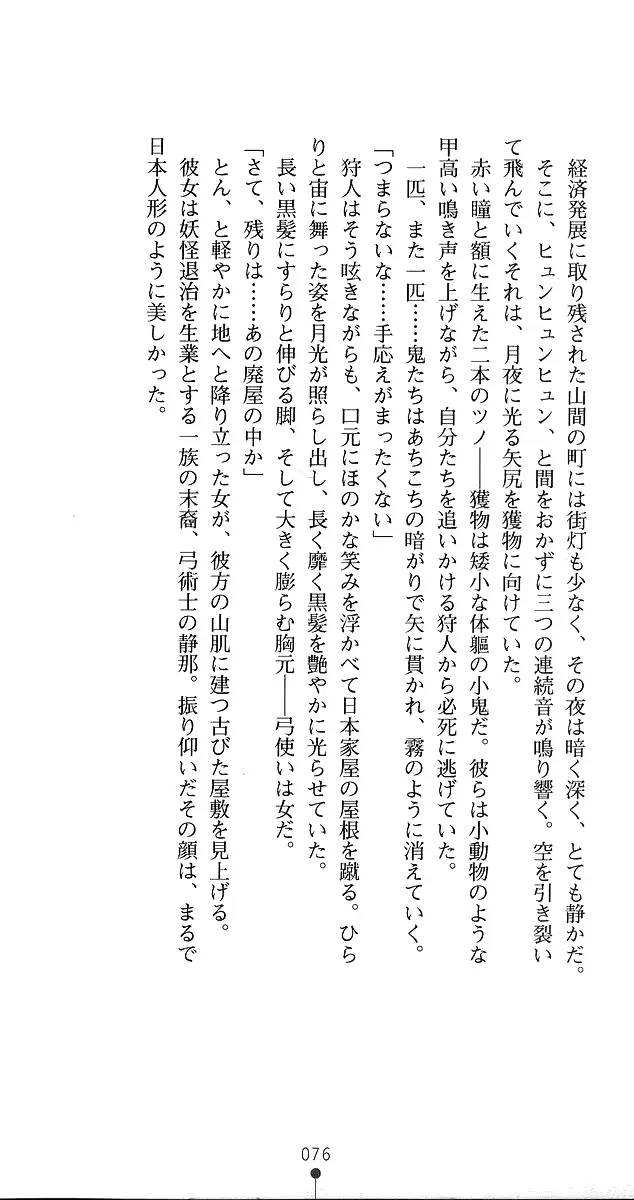 経済発展に取り残された山間の町には街灯も少なく、その夜は暗く深く、とても静かだ。
そこに、ヒュンヒュンヒュン、と間をおかずに三つの連続音が鳴り響く。空を引き裂い
て飛んでいくそれは、月夜に光る矢尻を獲物に向けていた。
赤い瞳と額に生えた二本のツノ――獲物は矮小な体躯の小鬼だ。彼らは小動物のような
甲高い鳴き声を上げながら、自分たちを追いかける狩人から必死に逃げていた。
一匹、また一匹……鬼たちはあちこちの暗がりで矢に貫かれ、霧のように消えていく。
「つまらないな……手応えがまったくない」
狩人はそう呟きながらも、口元にほのかな笑みを浮かべて日本家屋の屋根を蹴る。ひら
りと宙に舞った姿を月光が照らし出し、長く靡く黒髪を艶やかに光らせていた。
長い黒髪にすらりと伸びる脚、そして大きく膨らむ胸元――弓使いは女だ。
「さて、残りは……あの廃屋の中か」
とん、と軽やかに地へと降り立った女が、彼方の山肌に建つ古びた屋敷を見上げる。
彼女は妖怪退治を生業とする一族の末裔、弓術士の静那。振り仰いだその顔は、まるで
日本人形のように美しかった。
076